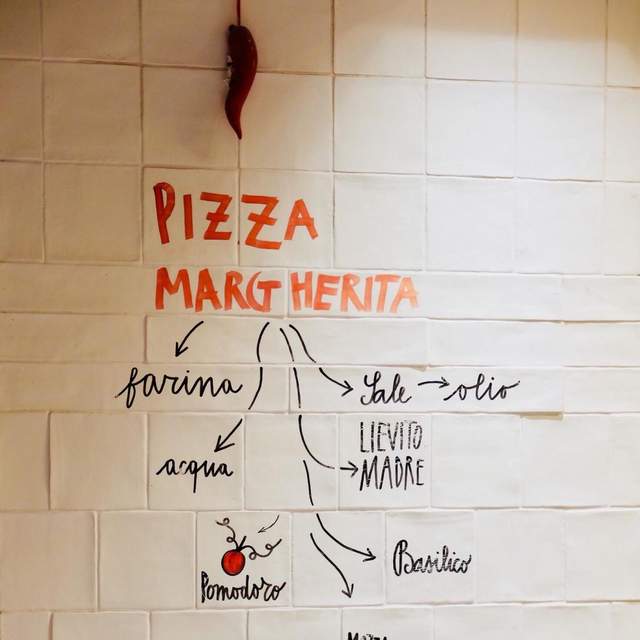 PIZZA
MARGHERITA
farina
Sale → olio
acqua
LIEVITO
MADRE
Pomodoro
Basilico